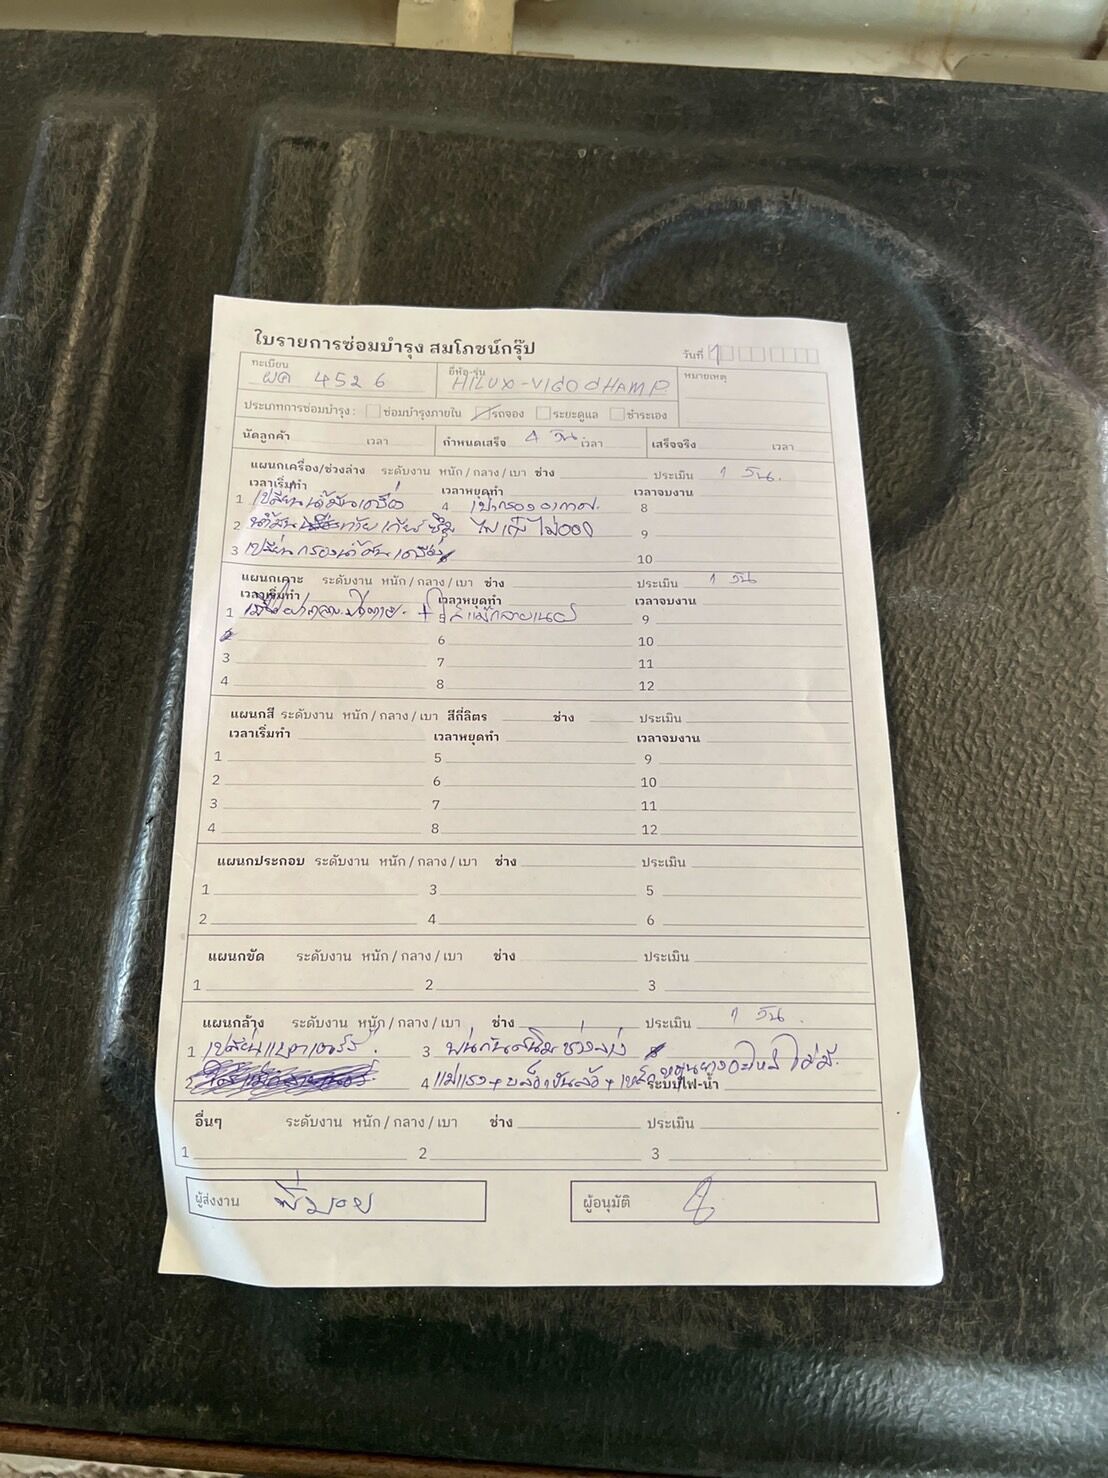 ใบรายการซ่อมบำรุง สมโภชน์กรุ๊ป
วันที่ 1
ทะเบียน ผค 4526 ยี่ห้อ-รุ่น HILUX-VIGO CHAMP หมายเหตุ
ประเภทการซ่อมบำรุง : ซ่อมบำรุงภายใน รถจอง ระยะดูแล ชำระเอง
นัดลูกค้า เวลา กำหนดเสร็จ 4 วัน เวลา เสร็จจริง เวลา
แผนกเครื่อง/ช่วงล่าง ระดับงาน หนัก / กลาง / เบา ช่าง ประเมิน 1 วัน.
เวลาเริ่มทำ เวลาหยุดทำ เวลาจบงาน
1 เปลี่ยนน้ำมันเครื่อง 4 เป่ากรองอากาศ. 8
2 น้ำมัน ท้าย เกียร์ ซึม ไฟ ไม่ออก 9
3 เปลี่ยนกรองน้ำมันเครื่อง 10
แผนกเคาะ ระดับงาน หนัก / กลาง / เบา ช่าง ประเมิน 1 วัน
เวลาเริ่มทำ เวลาหยุดทำ เวลาจบงาน
1 + 5 9
2 6 10
3 7 11
4 8 12
แผนกสี ระดับงาน หนัก / กลาง / เบา สีกี่ลิตร ช่าง ประเมิน
เวลาเริ่มทำ เวลาหยุดทำ เวลาจบงาน
1 5 9
2 6 10
3 7 11
4 8 12
แผนกประกอบ ระดับงาน หนัก / กลาง / เบา ช่าง ประเมิน
1 3 5
2 4 6
แผนกขัด ระดับงาน หนัก / กลาง / เบา ช่าง ประเมิน
1 2 3
แผนกล้าง ระดับงาน หนัก / กลาง / เบา ช่าง ประเมิน 1 วัน.
1 เปลี่ยนแบตเตอรี่. 3 พ่นกันสนิมช่วงล่าง
2 4 แม่แรง + บล็อกขันล้อ + เหล็กหมุนยางอะไหล่ ไม่มี. ระบบไฟ-น้ำ
อื่นๆ ระดับงาน หนัก / กลาง / เบา ช่าง ประเมิน
1 2 3
ผู้ส่งงาน ผู้อนุมัติ